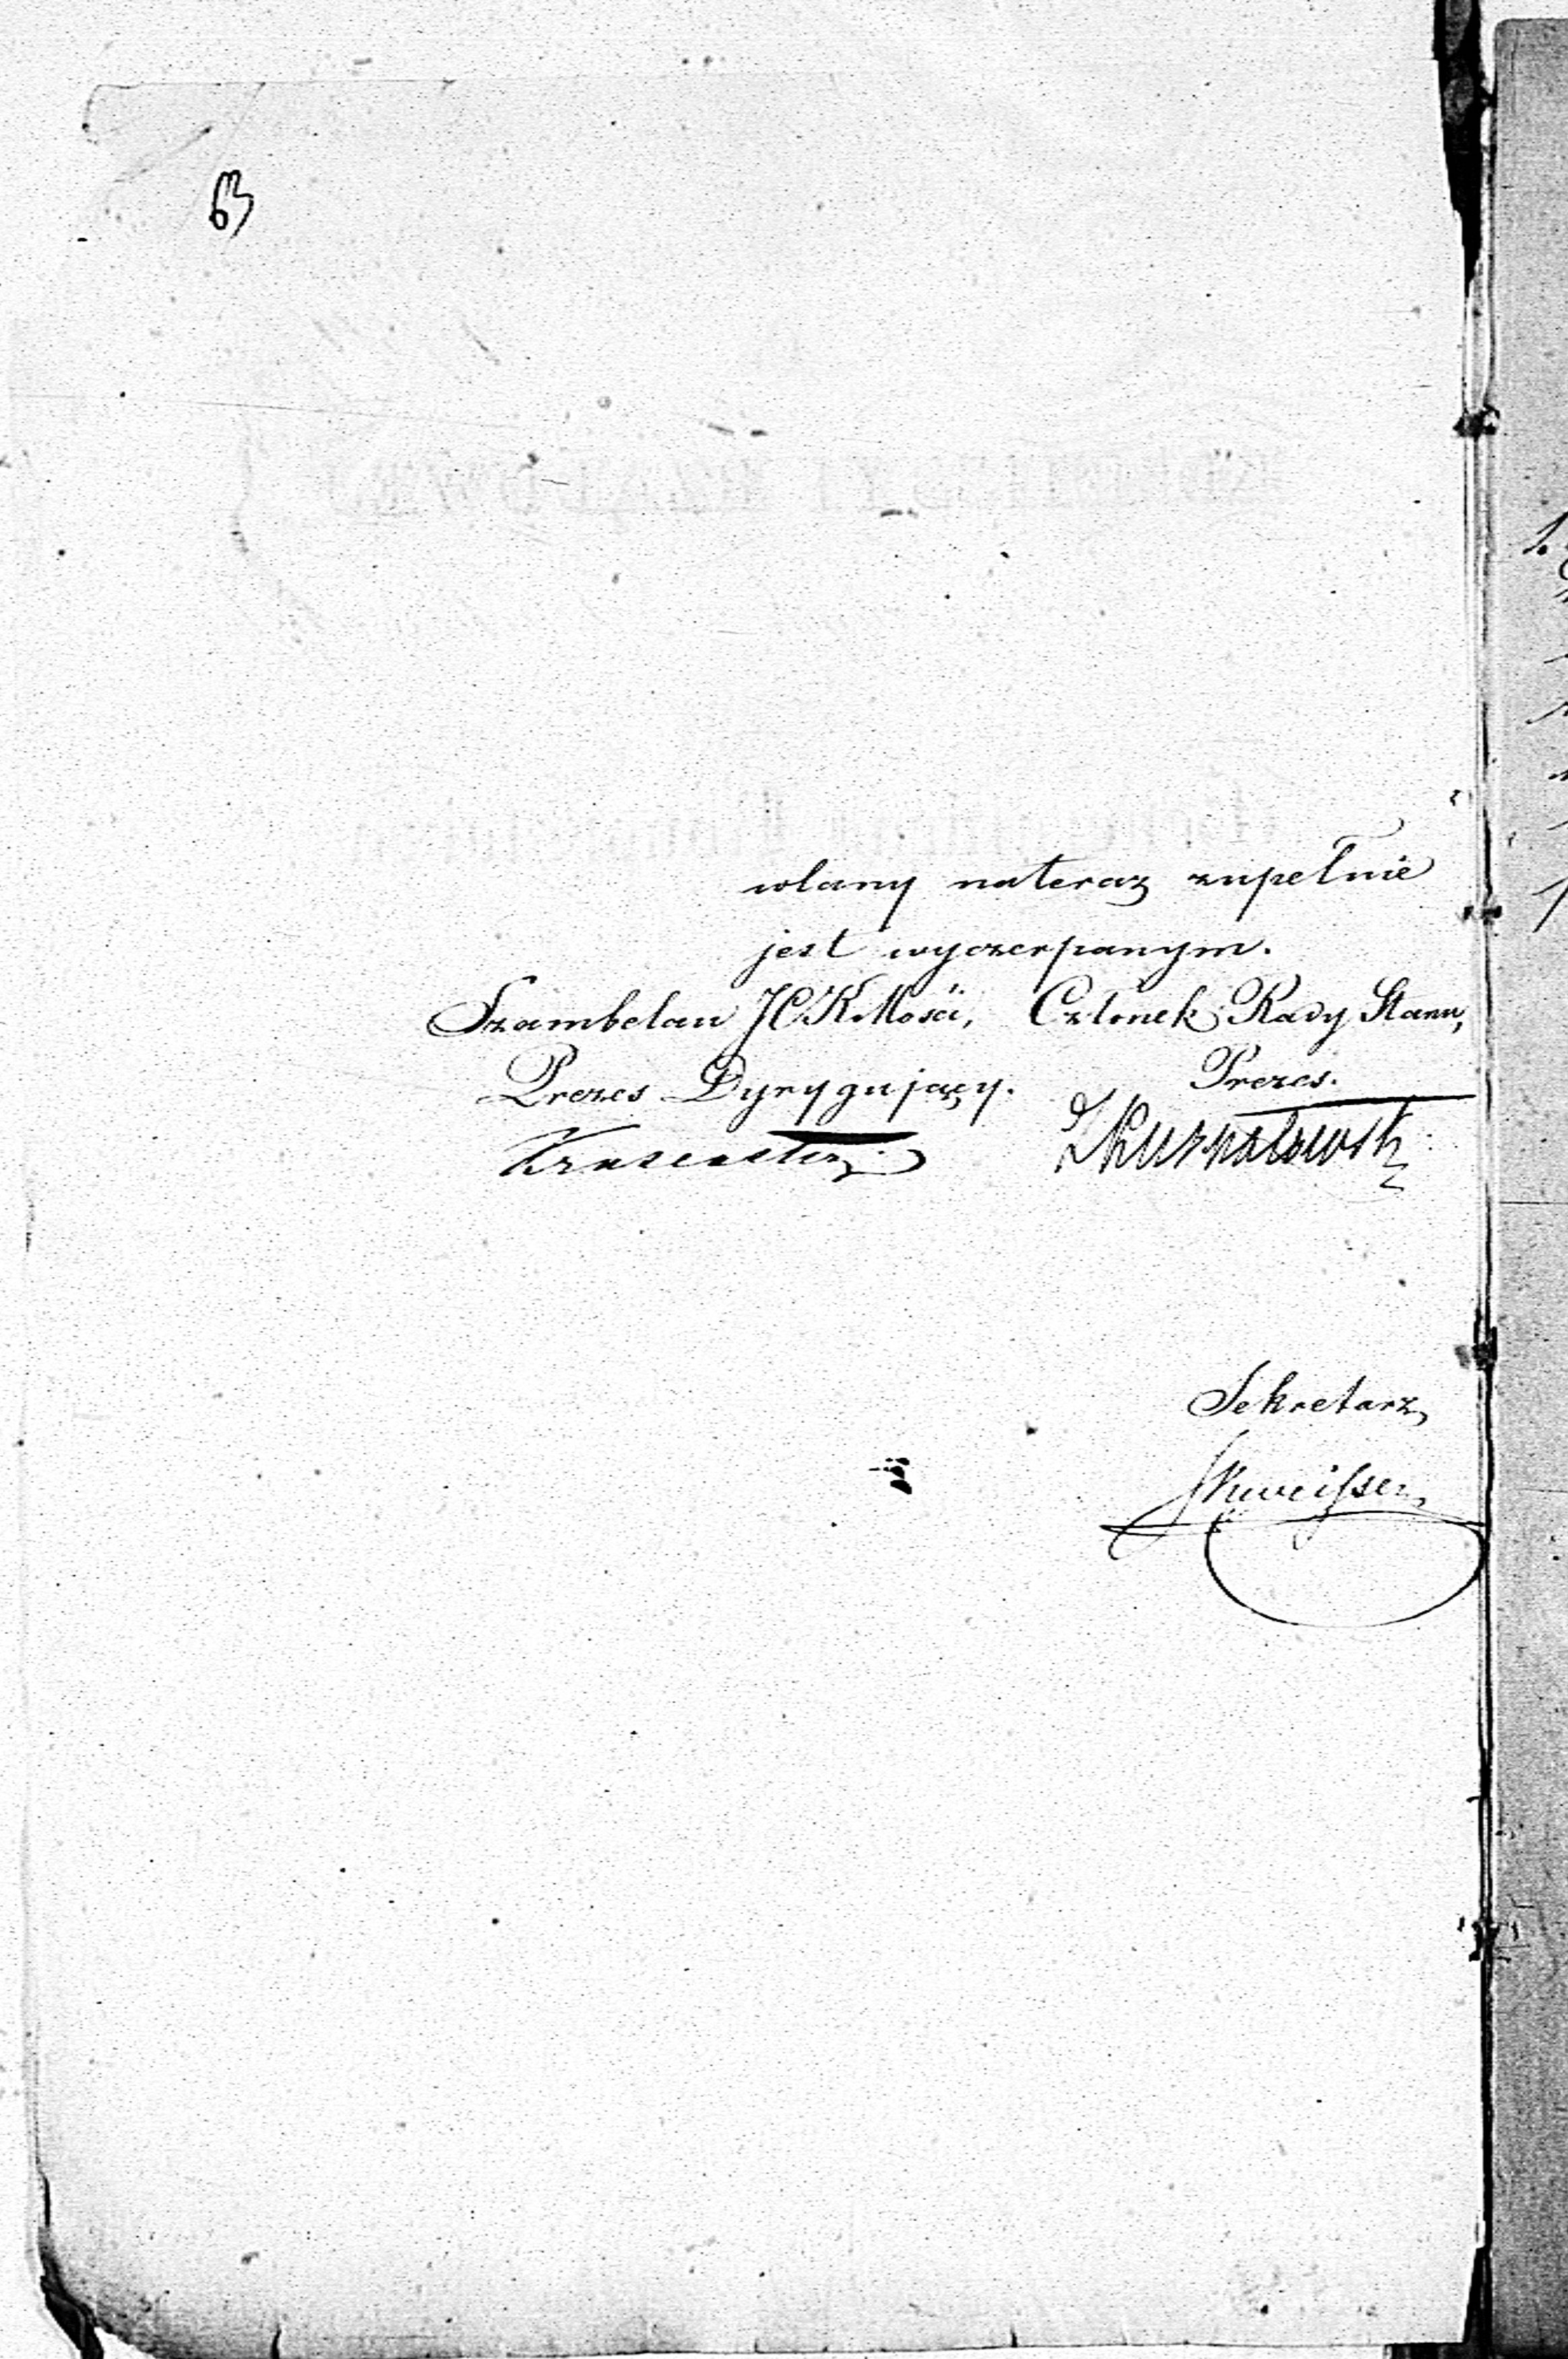 63
wlany nateraz zupełnie
jest wyczerpanym.
Szambelan JCKMości, Członek Rady Stanu,
Prezes Dyrygujący. Prezes.
Sekretarz